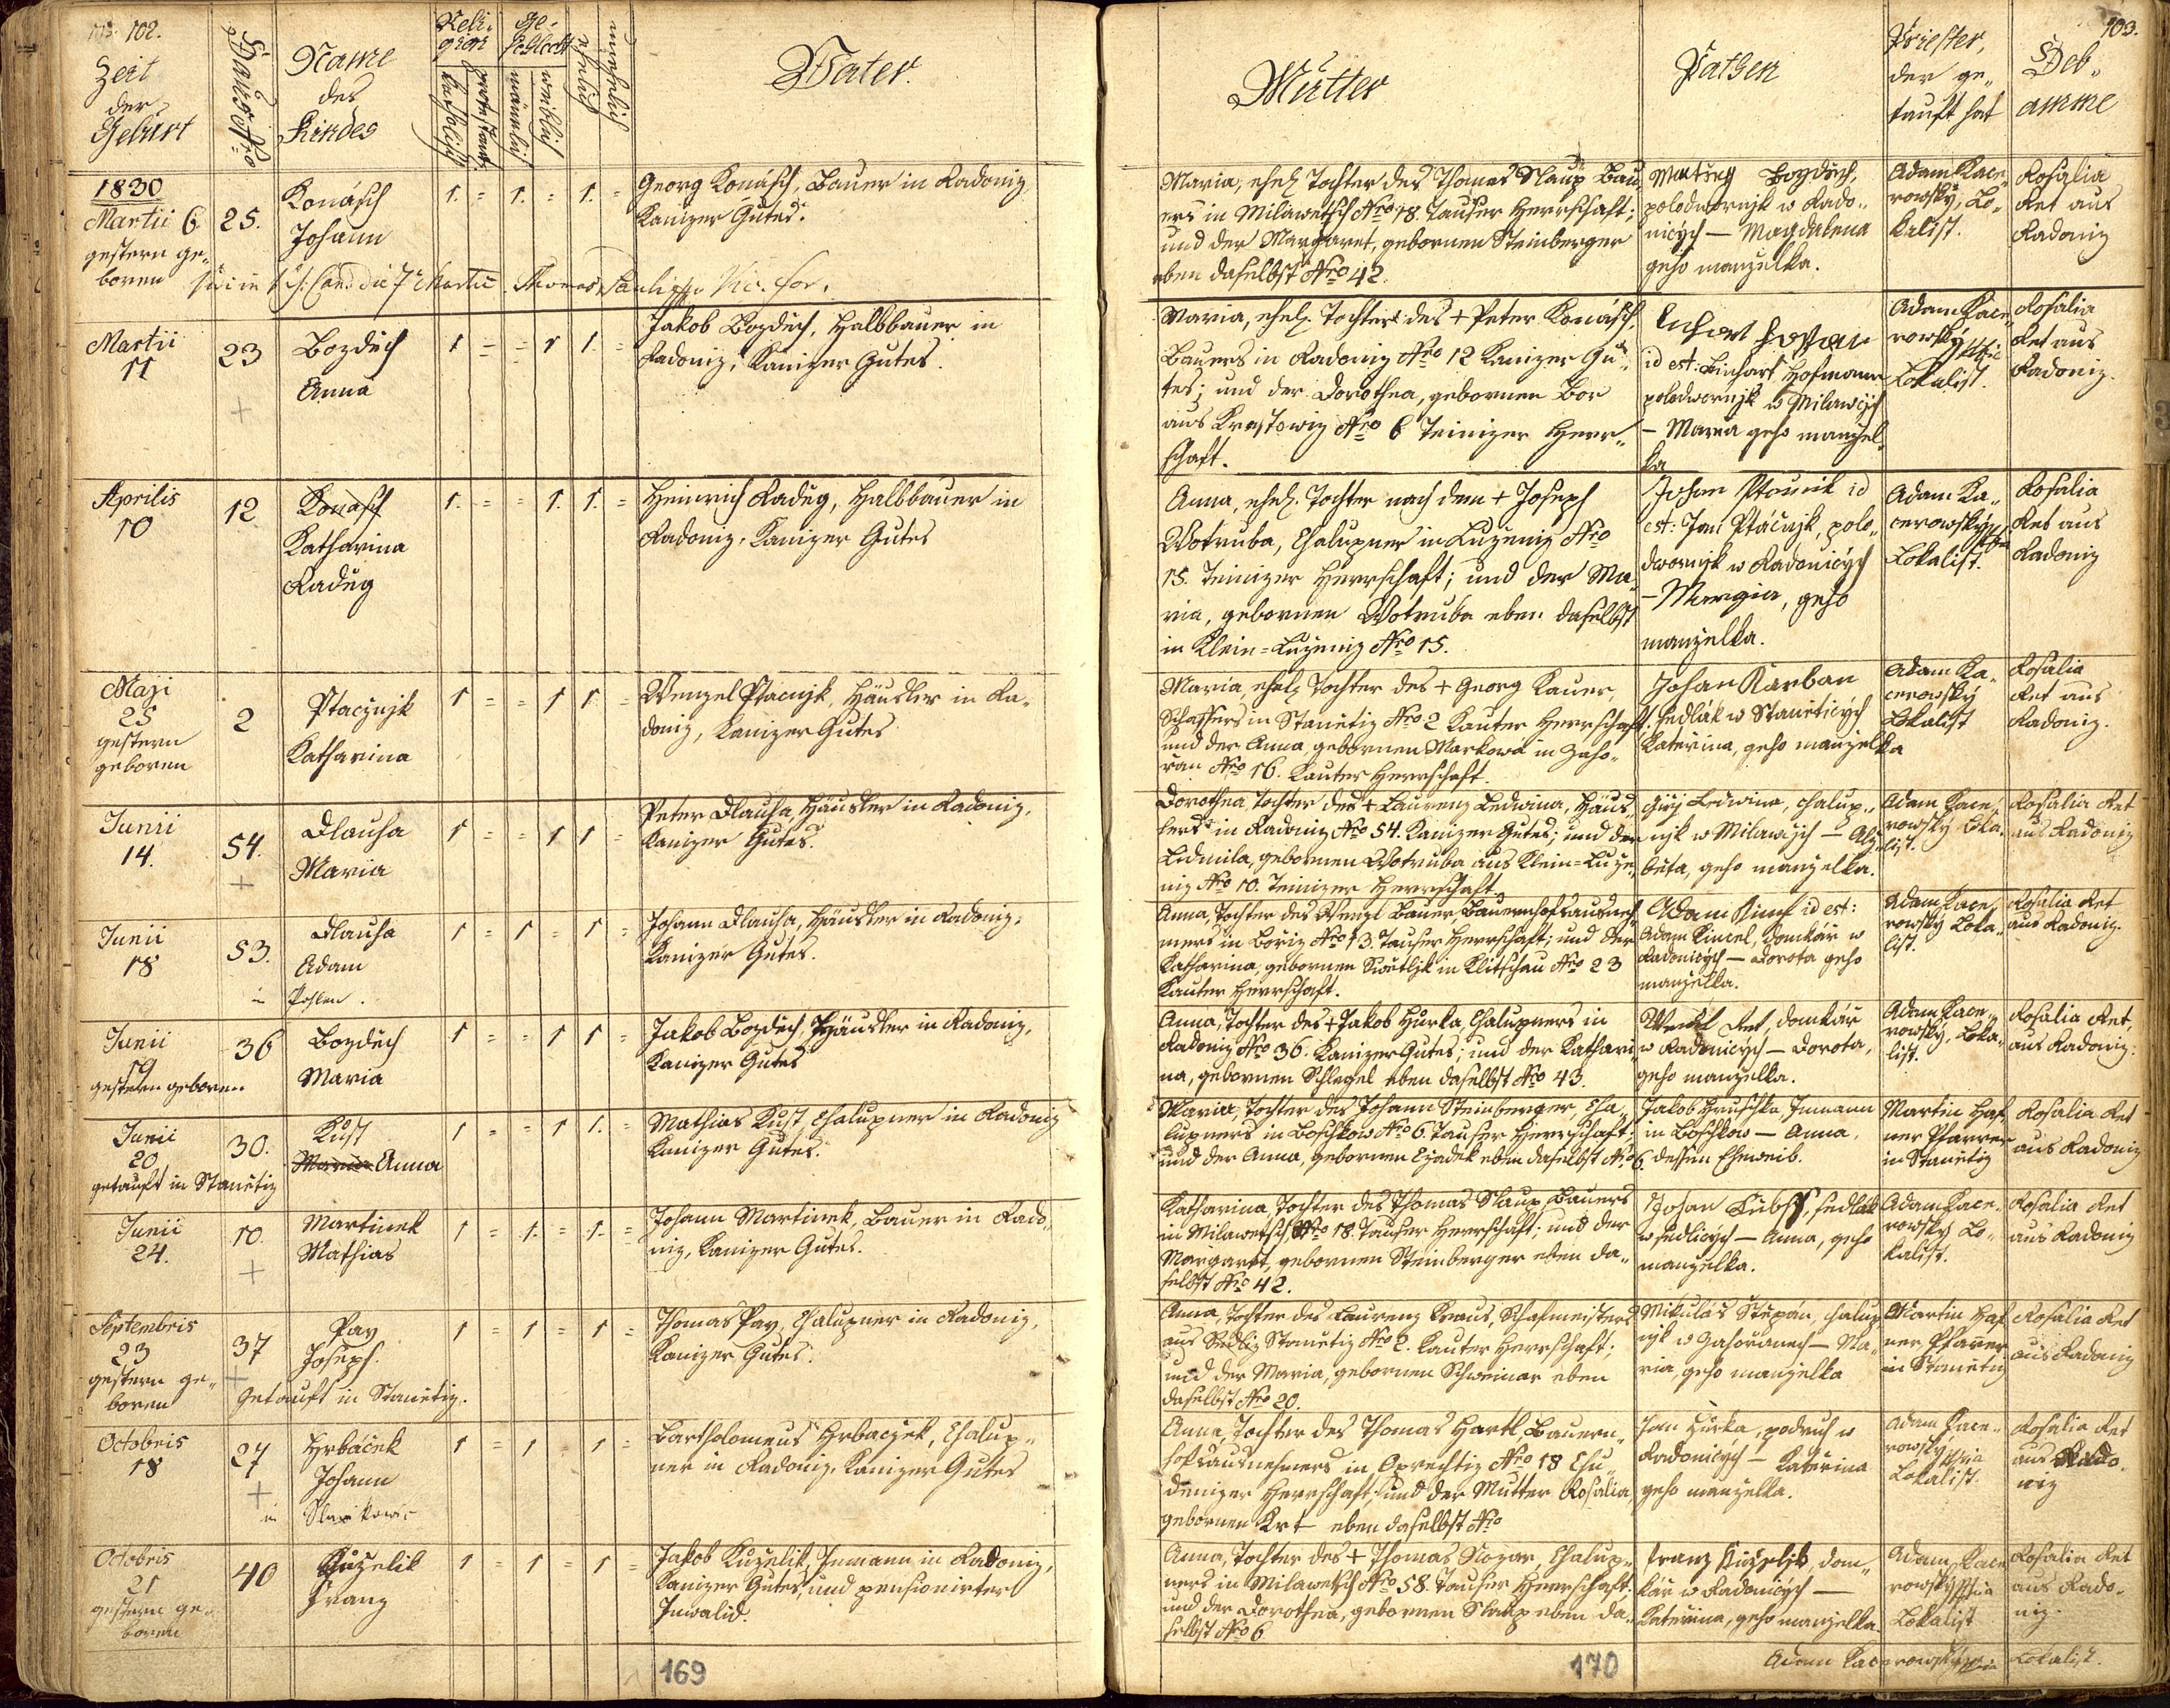 102.
Zeit
der
Geburt
Haus Nro
Name
des
Kindes
Reli-
gion
katholisch
protestant.
Ge-
schlecht
männlich
weiblich
ehelich
unehelich
Vater.
1830
Martii 6
gestern ge-
boren
25.
Konásch
Johann
1. = 1. = 1. =
Georg Konásch, Bauer in Radoniz
Kanizer Gutes.
Martii
11
23
Bozděch
Anna
1 = = 1 1. =
Jakob Bozděch, Halbbauer in
Radoniz, Kanizer Gutes.
Aprilis
10
12
Konasch
Katharina
Raděg
1. = = 1. 1. =
Heinrich Raděg, Halbbauer in
Radoniz, Kanizer Gutes
Maji
25
gestern
geboren
2
Ptacznjk
Katharina
1 = = 1 1 =
Wenzel Ptacnjk, Häusler in Ra-
doniz, Kanizer Gutes
Junii
14.
54.
Dlauha
Maria
1 = = 1 1 =
Peter Dlauha, Häusler in Radoniz,
Kanizer Gutes.
Junii
18
53.
Dlauha
Adam
in Pohlen.
1 = 1 = 1 =
Johann Dlauha, Häusler in Radoniz,
Kanizer Gutes.
Junii
19
gestern geboren
36
Bozděch
Maria
1 = = 1 1 =
Jakob Bozděch, Häusler in Radoniz,
Kanizer Gutes
Junii
20
getauft in Stanětiz
30.
Kust
Maria Anna
1 = = 1 1. =
Mathias Kust, Chalupner in Radoniz
Kanizer Gutes.
Junii
24.
10.
Martinek
Mathias
1 = 1. = 1. =
Johann Martinek, Bauer in Rado-
niz, Kanizer Gutes.
Septembris
23
gestern ge-
boren
37
Pay
Joseph.
Getauft in Stanětiz.
1 = 1 = 1 =
Thomas Pay, Chalupner in Radoniz,
Kanizer Gutes.
Octobris
18
27
Hrbáček
Johann
in
1 = 1 = 1 =
Bartholomeus Hrbaczek, Chalup-
ner in Radoniz, Kanizer Gutes
Octobris
21
gestern ge-
boren
40
Kuzelik
Franz
1 = 1 = 1 =
Jakob Kuzelik, Inmann in Radoniz,
Kanizer Gutes, und pensionirter
Inwalid.
169
103.
Mutter
Pathen
Priester,
der ge-
tauft hat
Heb-
amme
Maria, ehel. Tochter des Thomas Slaup Bau-
ers in Milawetsch Nro 18. Tauser Herrschaft;
und der Margaret, gebornen Steinberger
eben daselbst Nro 42.
Matieg Bozděch,
polodwornjk w Rado-
nicých — Magdalena
geho manzelka.
Adam Kace-
rowský, Lo-
kalist.
Rosalia
Ret aus
Radoniz
Maria, ehel. Tochter des + Peter Konásch,
Bauers in Radoniz Nro 12 Kanizer Gu-
tes; und der Dorothea, gebornen Bor
aus Krastowiz Nro 6 Teinizer Herr-
schaft.
id est: Linhart Hofmann
polodwornjk w Milawčých
— Maria geho manzel-
ka
Adam Kace-
rowský
Lokalist.
Rosalia
Ret aus
Radoniz.
Anna, ehel. Tochter nach dem + Joseph
Wotruba, Chalupner in Luzeniz Nro
15. Teinizer Herrschaft; und der Ma-
ria, gebornen Wotruba eben daselbst
in Klein-Luzeniz Nro 15.
Johan id
est: Jan Ptáčnjk, polo-
dwornjk w Radonicých
— Margia, geho
manzelka.
Adam Ka-
cerowský
Lokalist.
Rosalia
Ret aus
Radoniz
Maria, ehel. Tochter des + Georg Kauer,
Schaffers in Stanětiz Nro 2 Kauter Herrschaft;
und der Anna, gebornen Markowa in Zaho-
ran Nro 16. Kauter Herrschaft.
Johan Karban
sedlák w Stanětičých
Kateřina, geho manzelka
Adam Ka-
cerowský
Lokalist
Rosalia
Ret aus
Radoniz.
Dorothea, Tochter des + Laurenz Ledwina, Häus-
lers in Radoniz Nro 54. Kanizer Gutes; und der
Ludmila, gebornen Wotruba aus Klein-Luze-
niz Nro 10. Teinizer Herrschaft.
Girj Ledwina, chalup-
njk w Milawčých — Alz-
běta, geho manzelka.
Adam Kace-
rowský Loka-
list.
Rosalia Ret
aus Radoniz
Anna, Tochter des Wenzl Bauer, Bauernhofsausneh-
mers in Bořiz Nro 13. Tauser Herrschaft; und der
Katharina, gebornen Swětljk in Klitschau Nro 23
Kauter Herrschaft.
Adam id est:
Adam Kincel, domkár w
Radonicých — Dorota geho
manzelka.
Adam Kace-
rowský Loka-
list.
Rosalia Ret
aus Radoniz.
Anna, Tochter des + Jakob Hurka, Chalupners in
Radoniz Nro 36. Kanizer Gutes; und der Kathari-
na, gebornen Schlegel eben daselbst Nro 43.
Wenzl Ret, domkár
w Radonicých — Dorota,
geho manzelka.
Adam Kace-
rowský, Loka-
list.
Rosalia Ret,
aus Radoniz.
Maria, Tochter des Johann Steinberger, Cha-
lupners in Boschkow Nro 6. Tauser Herrschaft;
und der Anna, gebornen Czadek eben daselbst Nro 6.
Jakob Hruschka Inmann
in Boschkow — Anna,
dessen Eheweib.
Martin Haf-
ner Pfarrer
in Stanětiz
Rosalia Ret
aus Radoniz
Katharina, Tochter des Thomas Slaup, Bauers
in Milawetsch Nro 18. Tauser Herrschaft; und der
Margaret, gebornen Steinberger eben da-
selbst Nro 42.
Johan sedlák
w sedlicých — Anna, geho
manzelka.
Adam Kace-
rowský Lo-
kalist.
Rosalia Ret
aus Radoniz
Anna, Tochter des Laurenz Kraus, Schafmeisters
aus Stanětiz Nro 2. Kauter Herrschaft;
und der Maria, gebornen Schweinar eben
daselbst Nro 20.
Mikuláš Štěpán, chalup-
njk w Zahořanech — Ma-
ria, geho manzelka
Martin Haf-
ner Pfarrer
in Stanětiz
Rosalia Ret
aus Radoniz
Anna, Tochter des Thomas Hartl, Bauern-
hofsausnehmers in Oprechtiz Nro 18 Chu-
denizer Herrschaft, und der Mutter Rosalia,
gebornen Krt eben daselbst Nro
Jan Hurka, podruh w
Radonicých — Kateřina
geho manzelka.
Adam Kace-
rowský
Lokalist.
Rosalia Ret
aus Rado-
niz
Anna, Tochter des + Thomas Nozar, Chalup-
ners in Milawetsch Nro 58. Tauser Herrschaft;
und der Dorothea, gebornen Slaup eben da-
selbst Nro 6
Franz Kuzelik, dom-
kár w Radonicých —
Kateřina, geho manzelka.
Adam Kace-
rowský
Lokalist
Rosalia Ret
aus Rado-
niz.
Adam Kacerowský Lokalist.
170